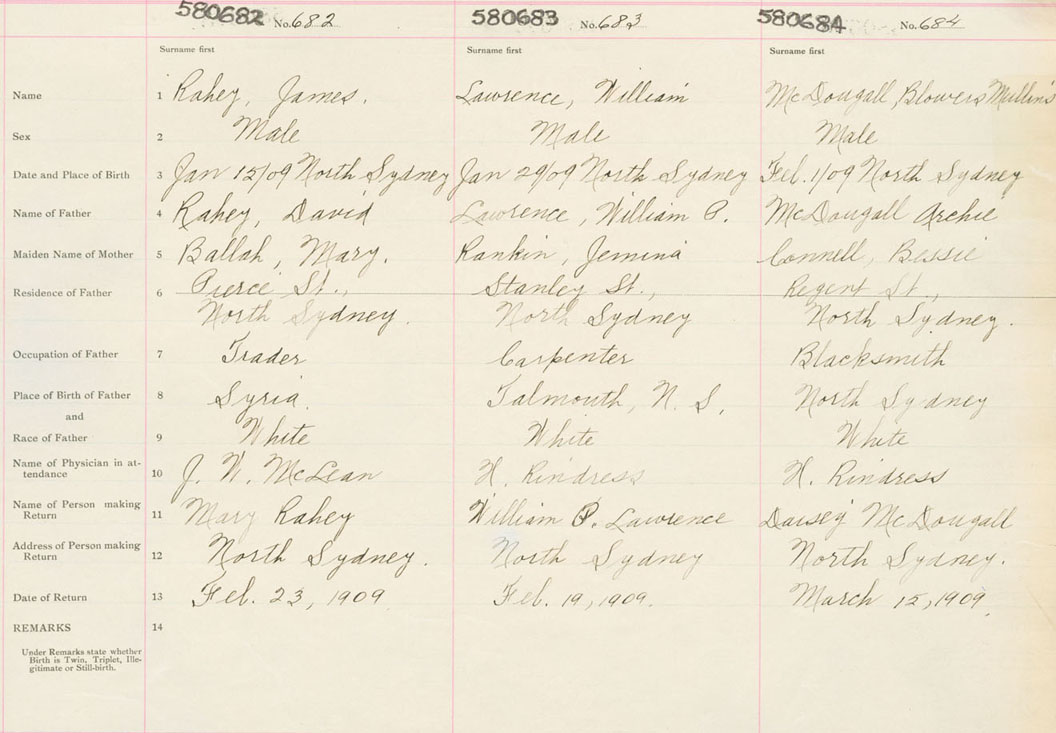 580682 No. 682 580683 No. 683 580684 No. 684
Surname first Surname first Surname first
Name 1 Rahey, James. Lawrence, William McDougall, Blowers Mullins
Sex 2 Male Male Male
Date and Place of Birth 3 Jan 12/09 North Sydney Jan 29/09 North Sydney Feb. 1/09 North Sydney
Name of Father 4 Rahey, David Lawrence, William P. McDougall Archie
Maiden Name of Mother 5 Ballah, Mary. Rankin, Jemina Connell, Bessie
Residence of Father 6 Pierce St., Stanley St., Regent St.,
North Sydney. North Sydney North Sydney.
Occupation of Father 7 Trader Carpenter Blacksmith
Place of Birth of Father 8 Syria. Falmouth, N. S. North Sydney
and
Race of Father 9 White White White
Name of Physician in at-
tendance 10 J. W. McLean H. Rindress H. Rindress
Name of Person making
Return 11 Mary Rahey William P. Lawrence Daisey McDougall
Address of Person making
Return 12 North Sydney. North Sydney North Sydney.
Date of Return 13 Feb. 23, 1909 Feb. 19, 1909. March 12, 1909.
REMARKS 14
Under Remarks state whether
Birth is Twin, Triplet, Ille-
gitimate or Still-birth.